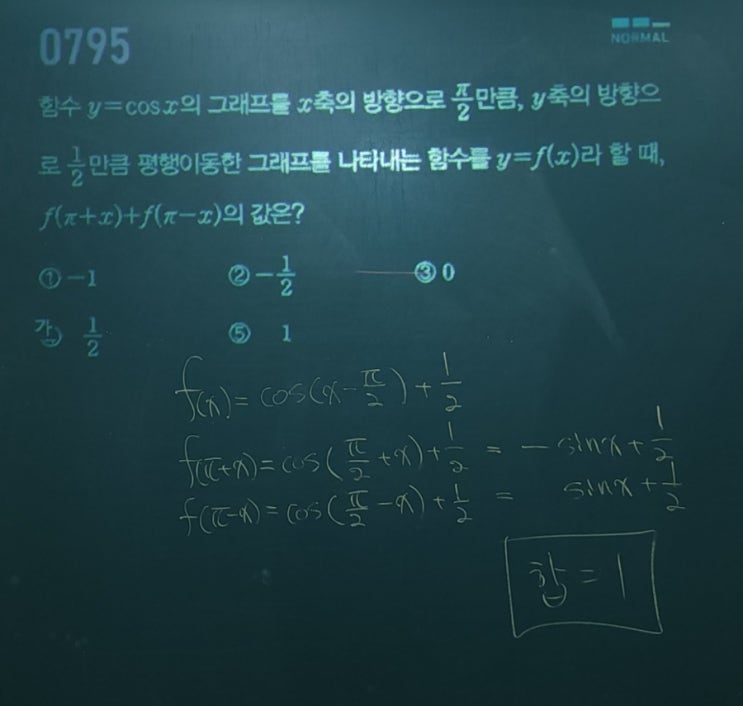 0795
NORMAL
함수 y=cosx의 그래프를 x축의 방향으로 π/2만큼, y축의 방향으
로 1/2만큼 평행이동한 그래프를 나타내는 함수를 y=f(x)라 할 때,
f(π+x)+f(π-x)의 값은?
① -1 ② -1/2 ③ 0
1/2 ⑤ 1
f(x)=cos(x-π/2)+1/2
f(π+x)=cos(π/2+x)+1/2 = -sinx+1/2
f(π-x)=cos(π/2-x)+1/2 = sinx+1/2
합=1